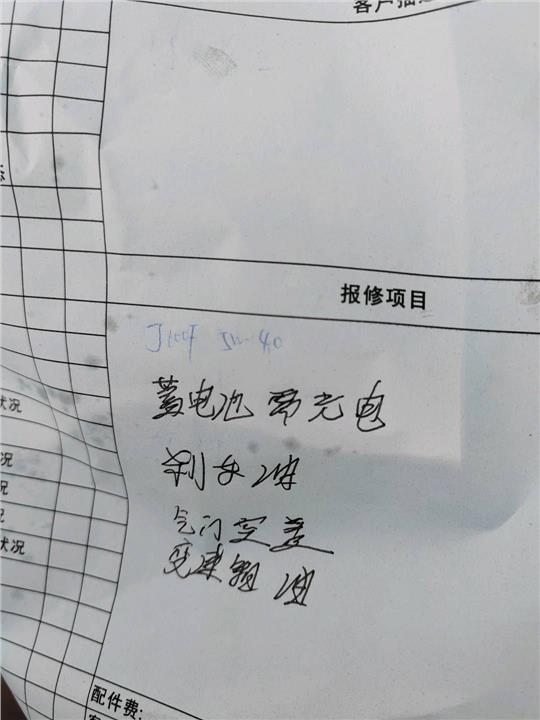 客户描述
态
报修项目
J600F 5W-40
状况
蓄电池需充电
况
刹车油
况
况
气门室盖
状况
变速箱油
配件费: